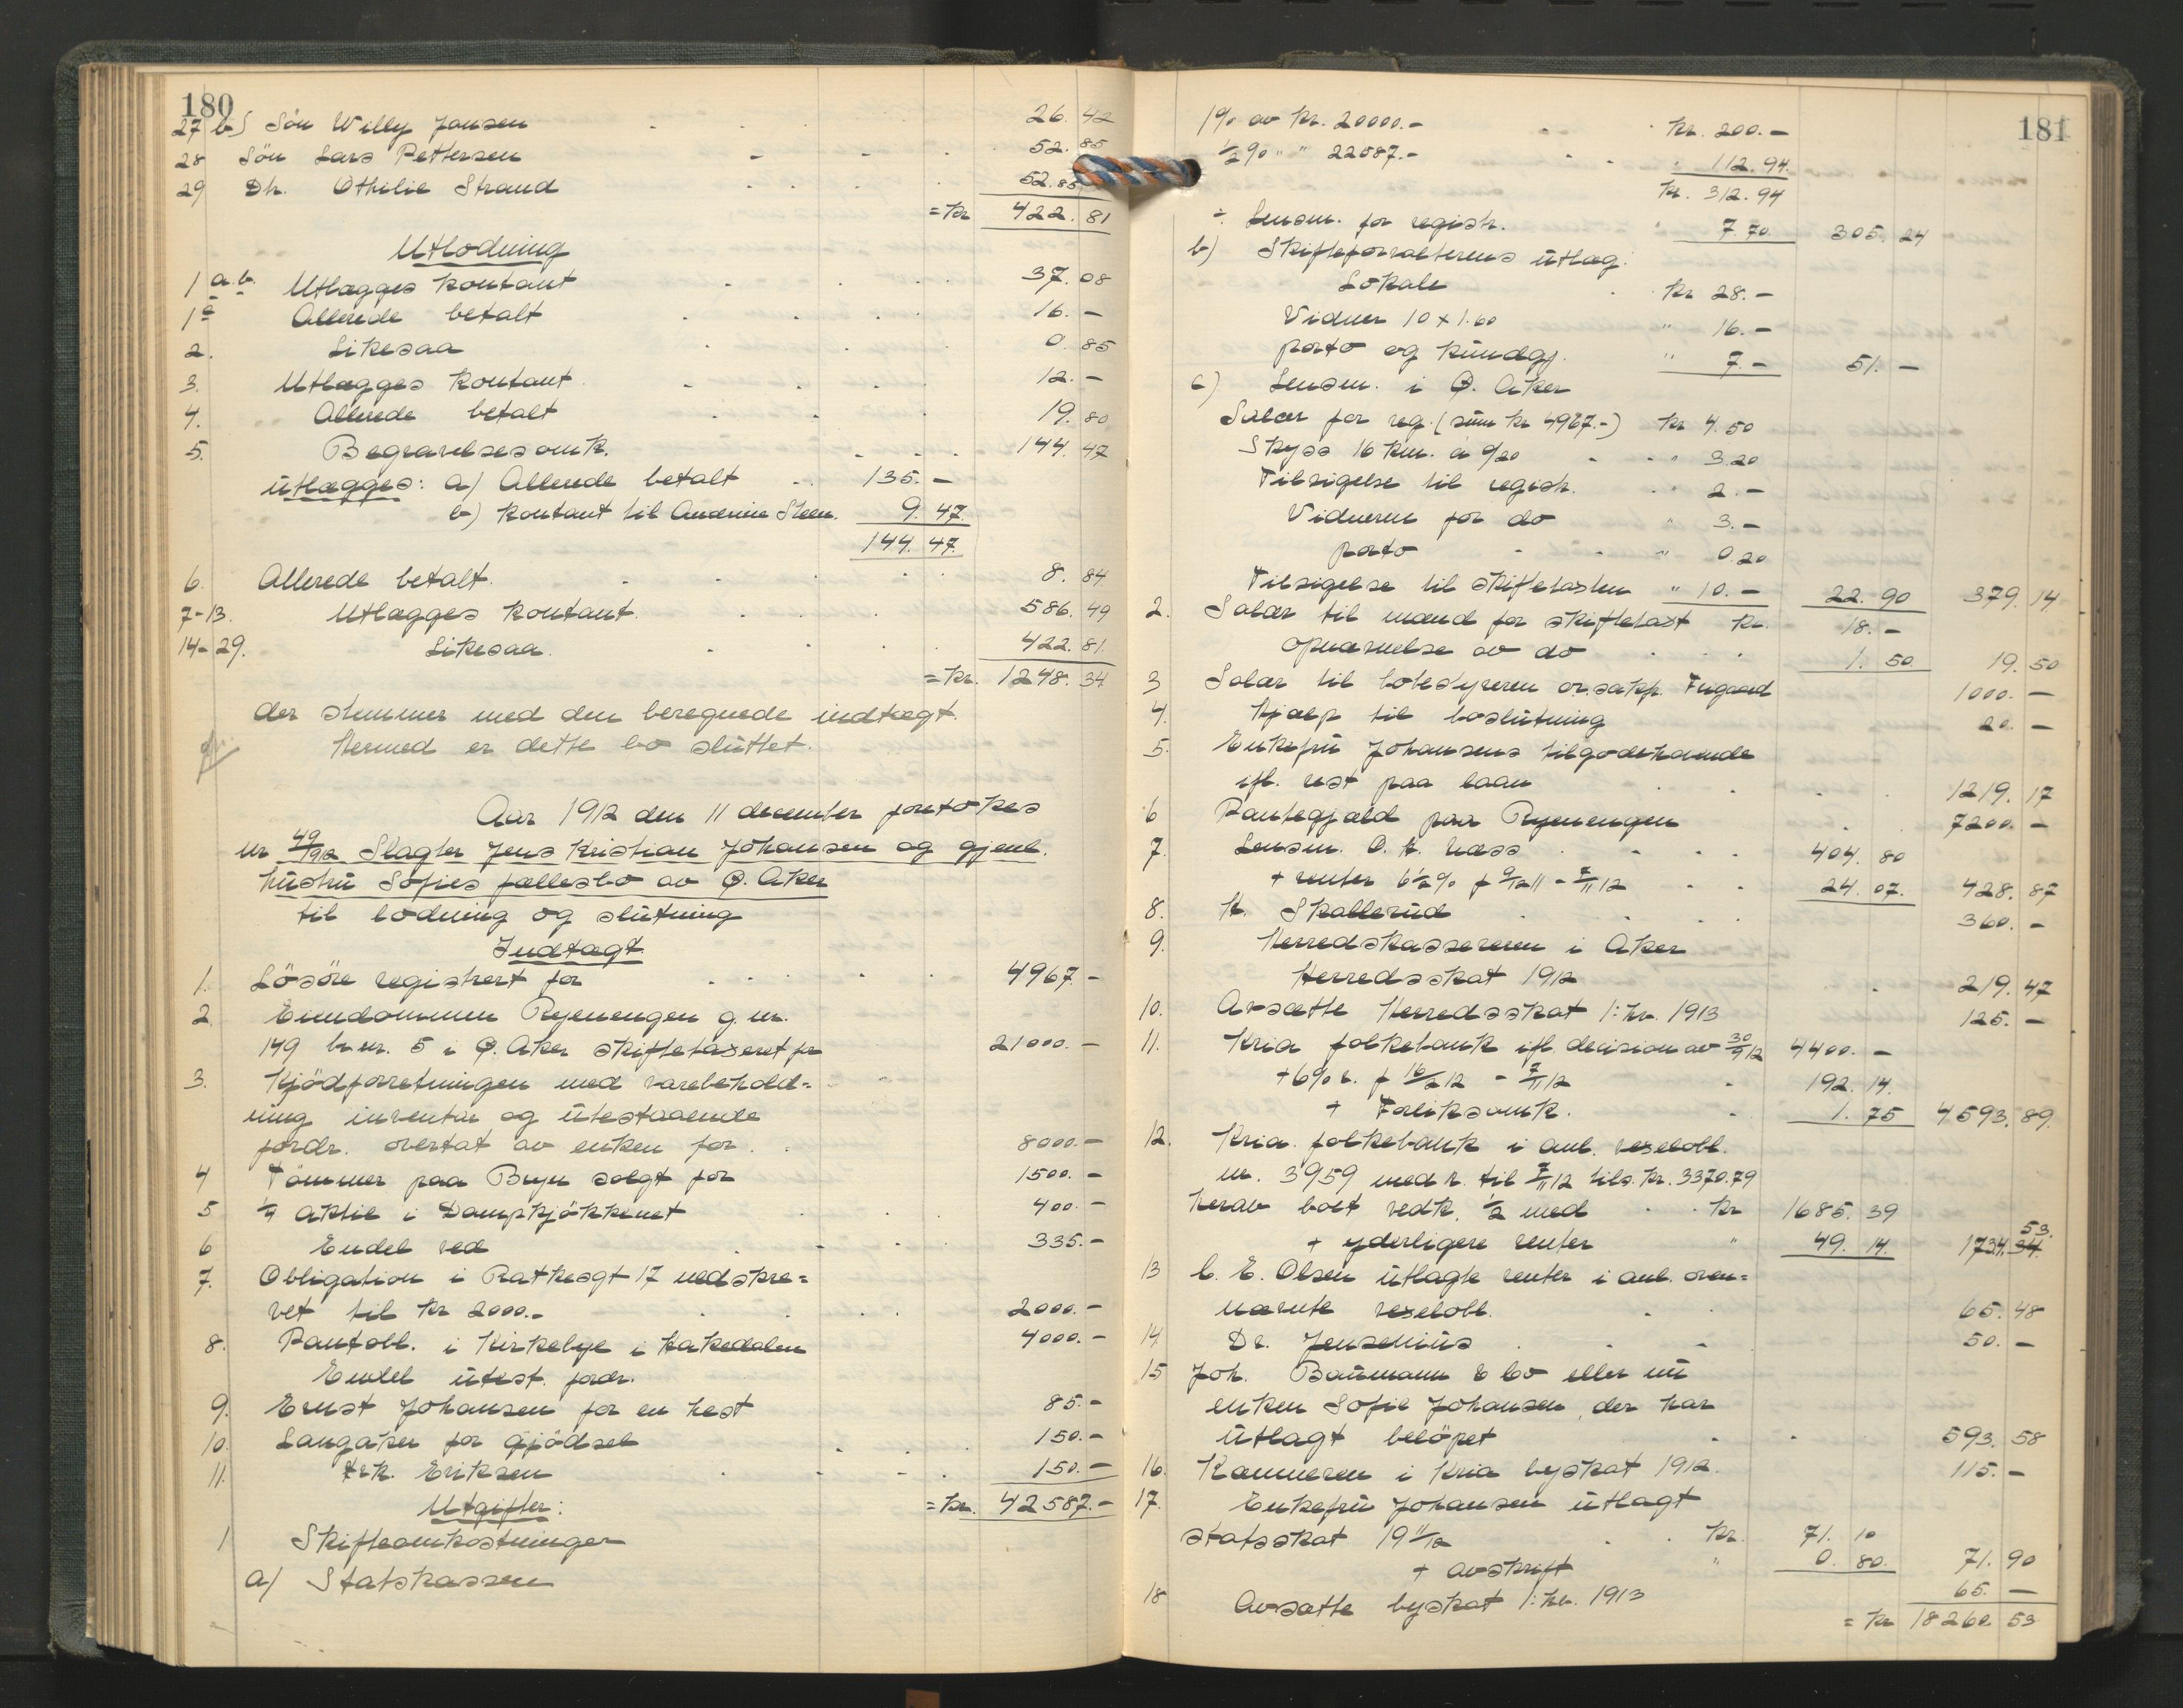 180
27 b) Sön Willy Jansen 26. 42
28 Sön Lars Pettersen 52. 85
29 Dtr. Othilie Strand 52. 85
= Kr 422. 81
Utlodning
1 a.b. Utlægges kontant 37. 08
1 c Allerede betalt 16. -
2. Likesaa 0. 85
3. Utlægges kontant. 12. -
4. Allerede betalt 19. 80
5. Begravelsesomk. 144. 47
utlægges: a) Allerede betalt 135. -
b) Kontant til Andrine Steen. 9. 47
144. 47.
6. Allerede betalt. 8. 84
7-13. Utlægges kontant. 586. 49
14-29. Likesaa. 422. 81.
= Kr. 1248. 34
der stemmer med den beregnede indtægt.
Hermed er dette bo sluttet.
Aar 1912 den 11 december foretokes
nr 49/912 Slagter Jens Kristian Johansen og gjenl.
hustru Sofies fællesbo av Ö. Aker
til lodning og slutning
Indtægt
1. Lösöre registrert for 4967. -
2. Eiendommen Ryenengen g. nr.
149 br. nr. 5 i Ö. Aker skiftetaxeret for 21000. -
3. Kjödforretningen med varebehold=
ning inventar og utestaaende
fordr. overtat av enken for 8000. -
4 Tömmer paa Bryn solgt for 1500. -
5 1/4 aktie i Dampkjökkenet 400. -
6 Endel ved 335. -
7. Obligation i Ratkesgt 17 nedskre=
vet til Kr 2000.- 2000. -
8. Pantobl. i Kirkebye i Hakedalen 4000. -
Endel utest. fordr.
9. Ernst Johansen for en hest 85. -
10. Langaker for gjödsel 150. -
11. Frk. Eriksen 150. -
Utgifter: = Kr. 42587. -
1 Skifteomkostninger
a) Statskassen
181
1% av Kr. 20000.- Kr. 200. -
1/2 % " " 22587.- " 112. 94.
Kr. 312. 94
÷ Lensm. for registr. " 7. 70. 305. 24
b) Skifteforvalterens utlæg:
Lokale Kr 28. -
Vidner 10 x 1.60 " 16. -
porto og kundgj. " 7. - 51. -
c) Lensm. i Ö. Aker
Salær for reg. (sum Kr 4967.-) Kr 4. 50
Skyss 16 km. á 0/20 " 3.20
Tilsigelse til registr. " 2. -
Vidneren for do " 3. -
porto " 0.20
Tilsigelse til skiftetaxten " 10. - 22. 90 379. 14
2. Salær til mænd for skiftetaxt Kr. 18. -
opnævnelse av do 1. 50 19. 50
3 Salær til bobestyreren o.r.sakf. Fugaard 1000. -
4. Hjælp til boslutning 20. -
5. Enkefru Johansens tilgodehavende
ifl. rest paa laan 1219. 17
6 Pantegjæld paa Ryenengen 7200. -
7. Lensm. O. H. Næss 404. 80
+ renter 6 1/2 % f 9/12 11 - 7/11 12 24. 07. 428. 87
8. H. Skallerud 360. -
9. Herredskassereren i Aker
Herredsskat 1912 219. 47
10. Avsætte Herredsskat 1: hv. 1913 125. -
11. Kria folkebank ifl. decision av 30/9 12 4400. -
+ 6% r. f 16/2 12 - 7/11 12 192. 14.
+ Forliksomk. 1. 75 4593. 89.
12. Kria. folkebank i anl. vexelobl.
nr. 3959 med r. til 7/11 12 tils. Kr. 3370.79
herav boet vedk. 1/2 med Kr 1685. 39
+ yderligere renter " 49. 14. 1734. 53.
13 C. E. Olsen utlagte renter i anl. oven=
nævnte vexelobl. 65. 48
14 Dr. Jensenius 50. -
15 Joh. Baumann & Co eller nu
enken Sofie Johansen, der har
utlagt belöpet 593. 58
16. Kæmneren i Kria byskat 1912. 115. -
17. Enkefru Johansen utlagt
statsskat 19 11/12 Kr. 71. 10
+ avskrift " 0. 80. 71. 90
18 Avsætte byskat 1: hv. 1913 65. -
= Kr 18260. 53